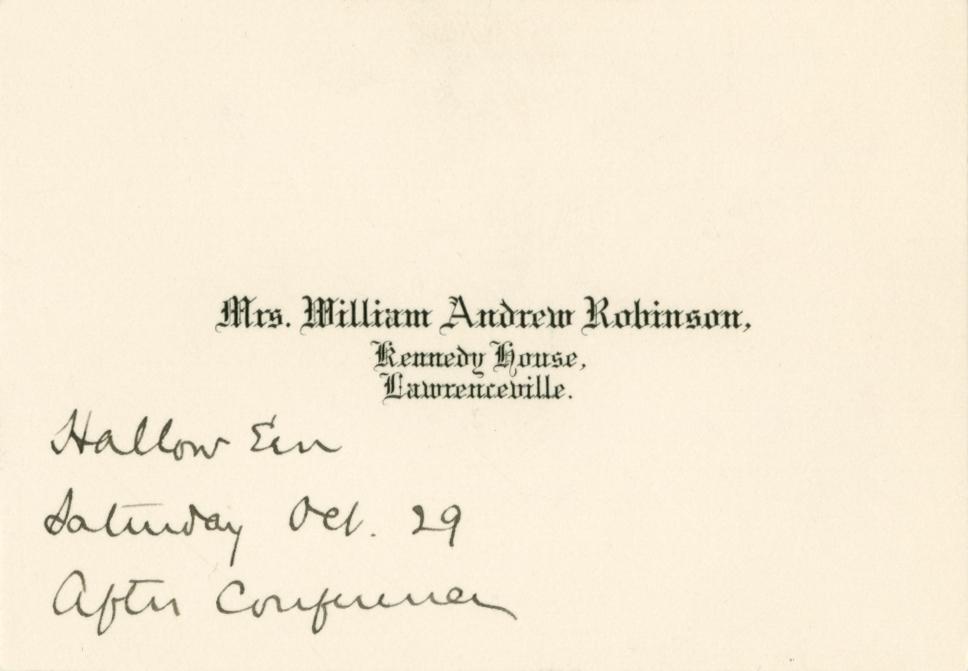 Mrs. William Andrew Robinson,
Kennedy House,
Lawrenceville.
Hallow Een
Saturday Oct. 29
After Conference